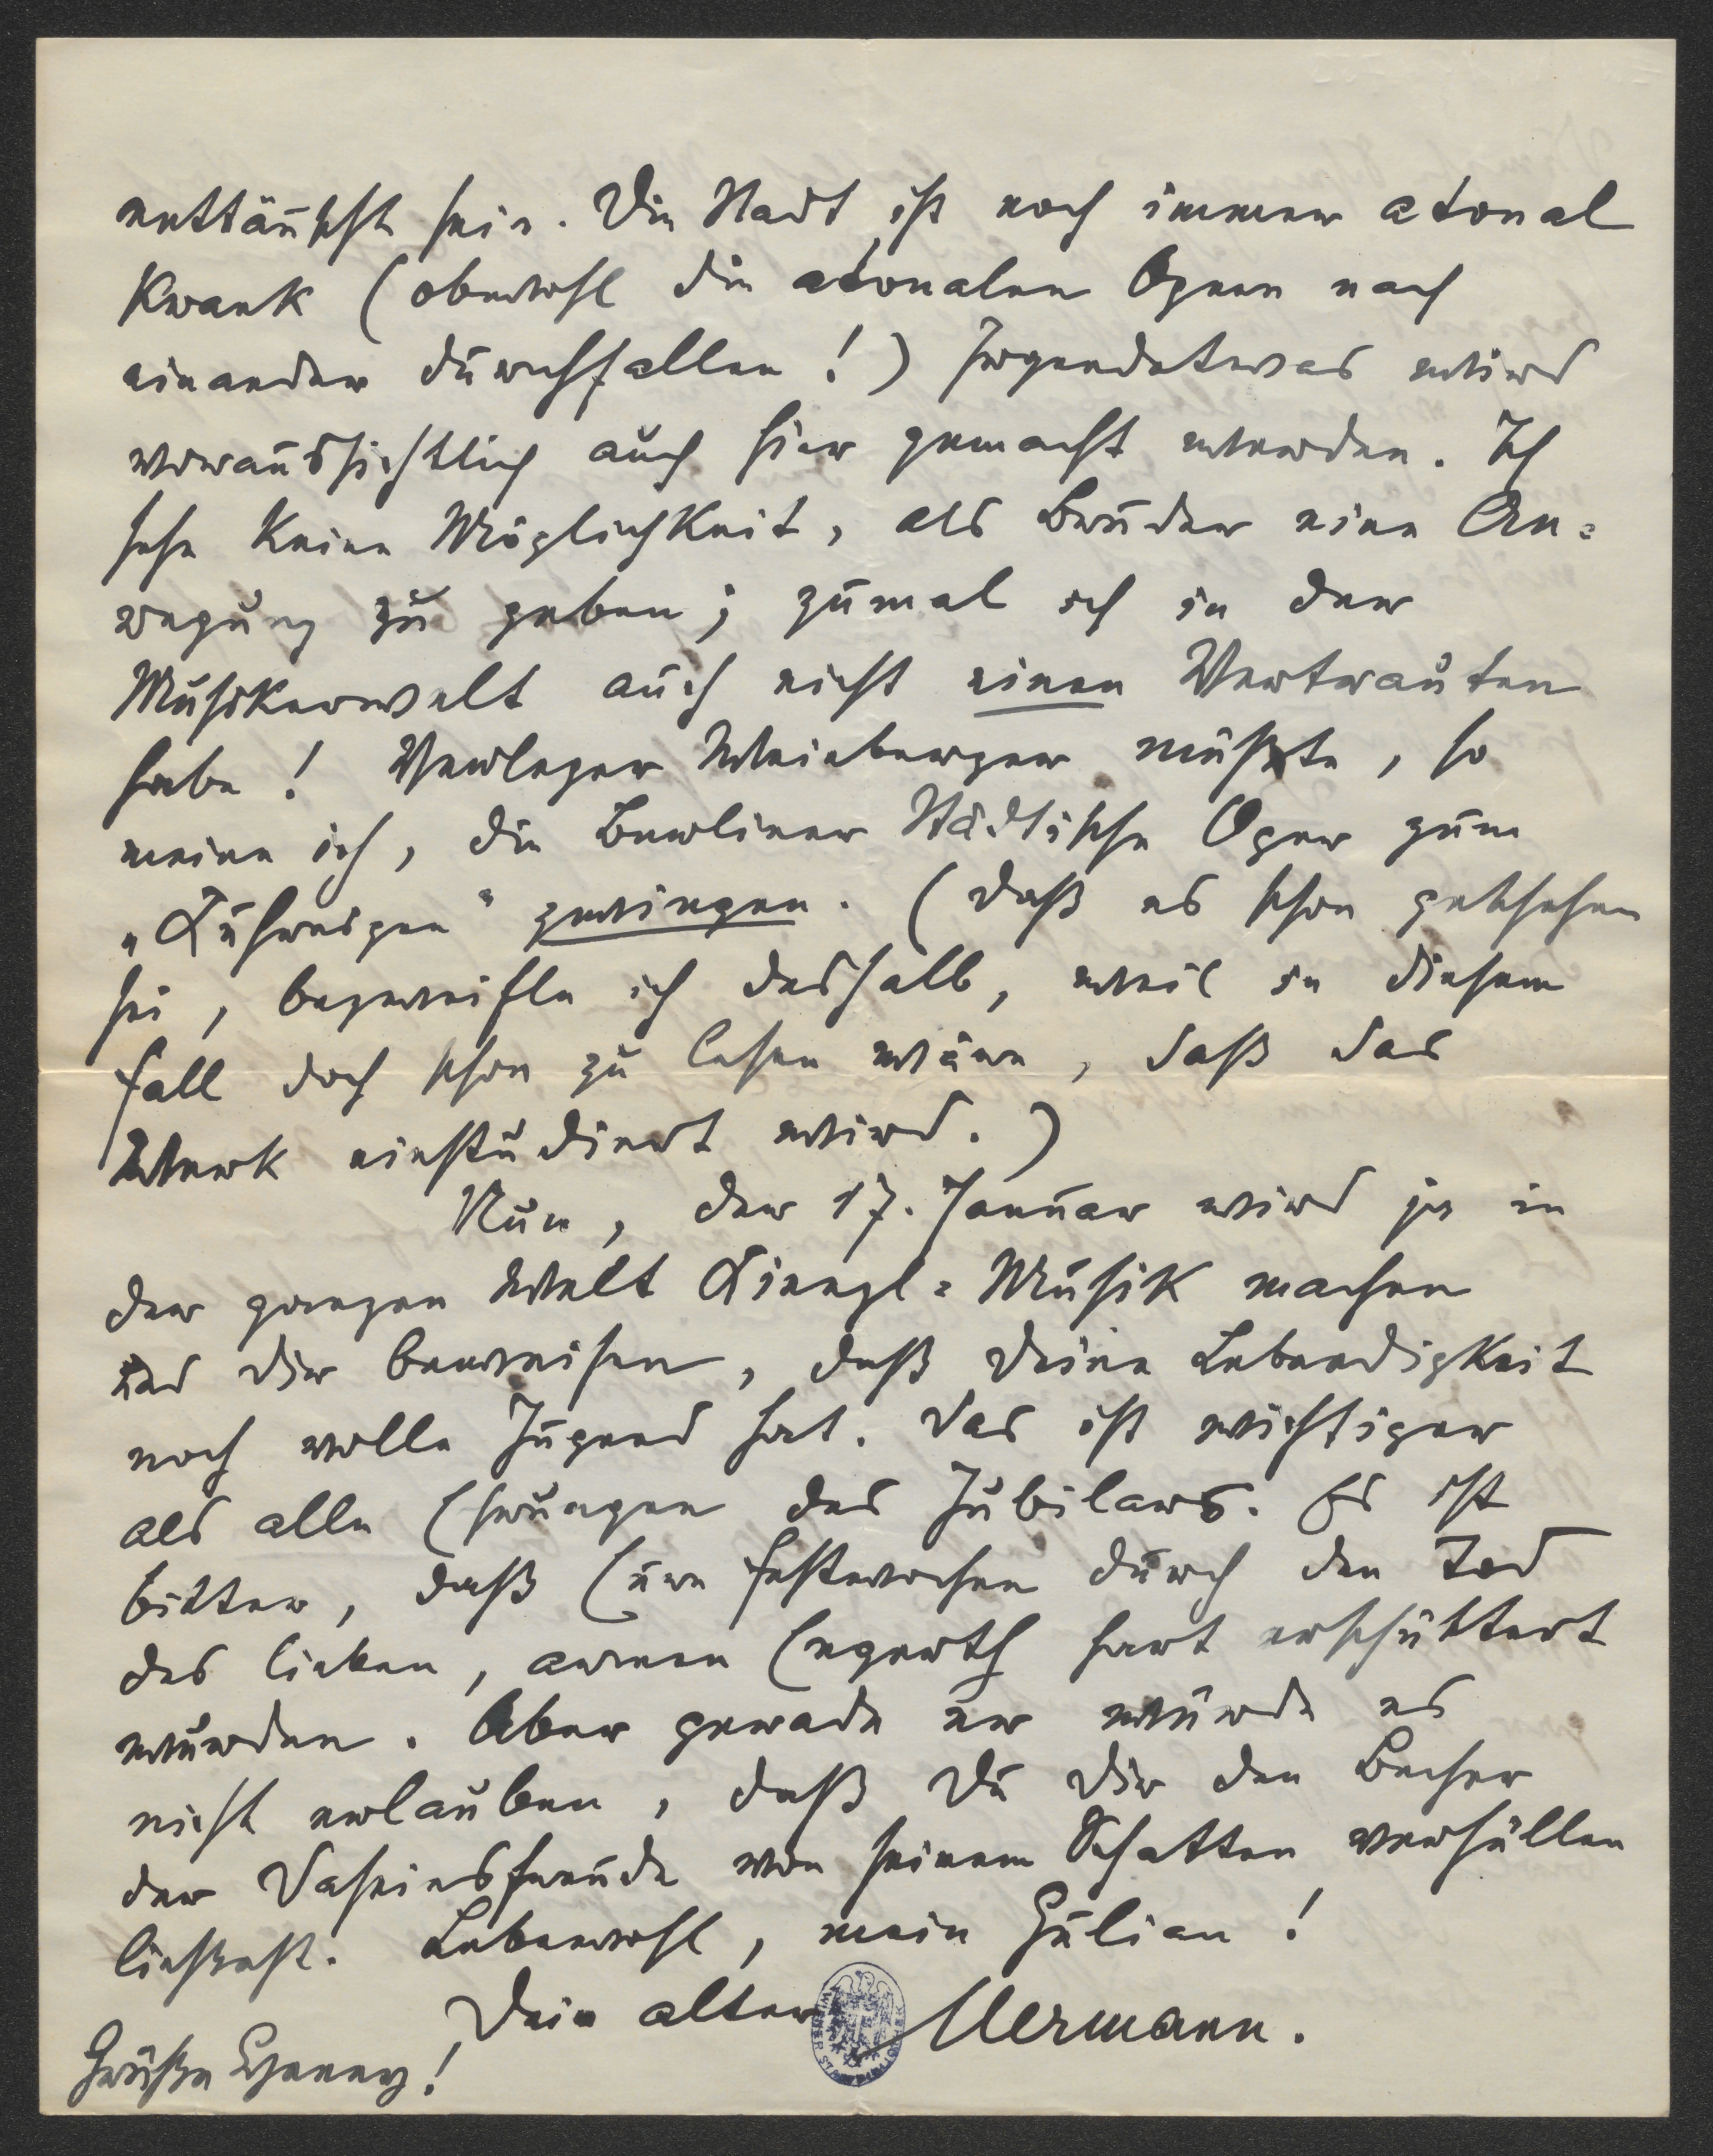 enttäuscht sein. Die Stadt ist noch immer atonal
krank (obwohl die atonalen Opern nach
einander durchfallen!) Irgendetwas wird
voraussichtlich auch hier gemacht werden. Ich
sehe keine Möglichkeit, als Bruder eine An=
regung zu geben; zumal ich in der
Musikerwelt auch nicht einen Vertrauten
habe! Verleger Weinberger müßte, so
meine ich, die Berliner Städtische Oper zum
„Kuhreigen" zwingen. (Daß es schon geschehen
sei, bezweifle ich deshalb, weil in diesem
Fall doch schon zu lesen wäre, daß das
Werk einstudiert wird.)
Nun, der 17. Januar wird ja in
der ganzen Welt Kienzl=Musik machen
und Dir beweisen, daß Deine Lebendigkeit
noch volle Jugend hat. Das ist wichtiger
als alle Ehrungen des Jubilars. Es ist
bitter, daß Eure Festwochen durch den Tod
des lieben, armen Engerth hart erschüttert
wurden. Aber gerade er würde es
nicht erlauben, daß Du Dir den Becher
der Daseinsfreude von seinem Schatten verhüllen
ließest. Lebewohl, mein Julian!
Dein alter Hermann.
Grüße Henny!